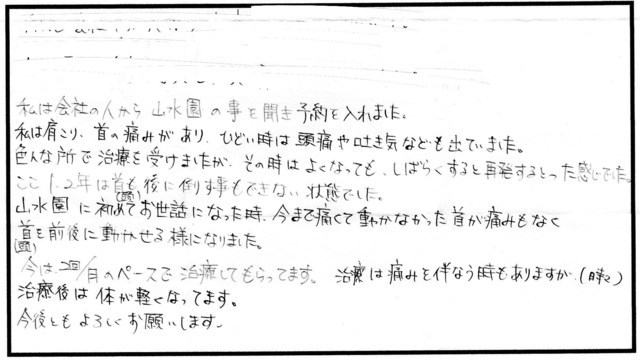 私は会社の人から山水園の事を聞き予約を入れました。
私は肩こり、首の痛みがあり、ひどい時は頭痛や吐き気なども出ていました。
色んな所で治療を受けましたが、その時はよくなっても、しばらくすると再発するといった感じでした。
ここ1.2年は首も後に倒す事もできない状態でした。
山水園に初めてお世話になった時、今まで痛くて動かなかった首が痛みもなく
首を前後に動かせる様になりました。
今は2回/月のペースで治療してもらってます。 治療は痛みを伴なう時もありますが(時々)
治療後は体が軽くなってます。
今後ともよろしくお願いします。